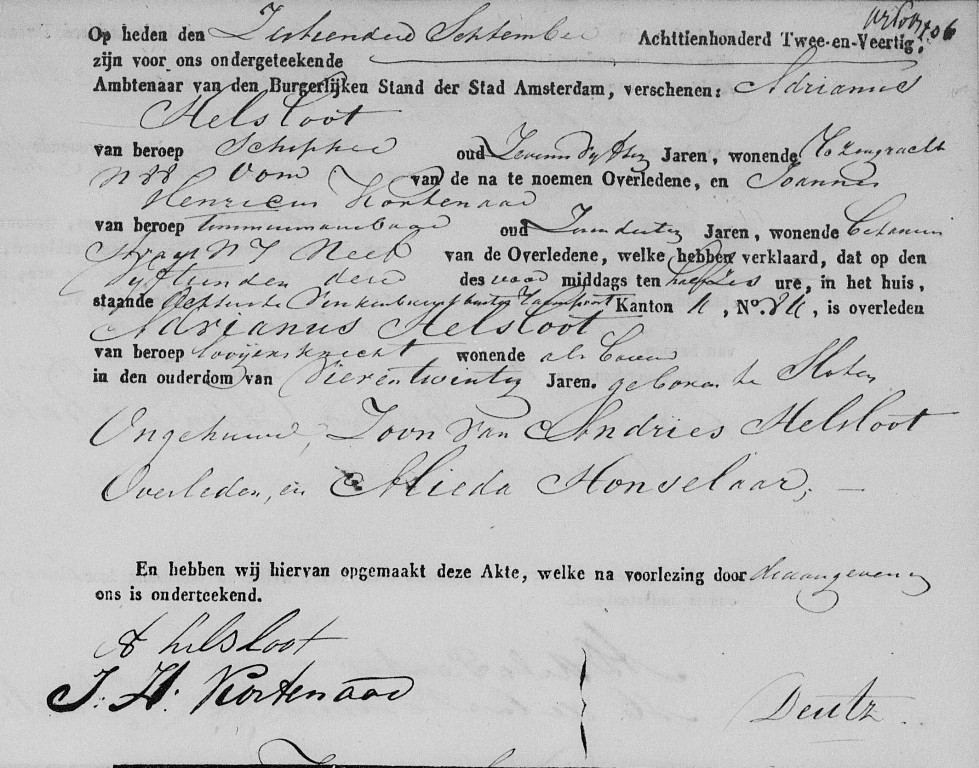 Op heden den Zestienden September Achttienhonderd Twee-en-Veertig,
zijn voor ons ondergeteekende
Ambtenaar van den Burgerlijken Stand der Stad Amsterdam, verschenen: Adrianus
Helsloot
van beroep Schipper oud Jaren, wonende
N 88 Oom van de na te noemen Overledene, en Joannes
Henricus Kortenaar
van beroep timmermansbaas oud Jaren, wonende
N 7 Neef van de Overledene, welke hebben verklaard, dat op den
Vijftienden dezer des voor middags ten half zes ure, in het huis,
staande Kanton U, No. 84, is overleden
Adrianus Helsloot
van beroep wonende als boven
in den ouderdom van Vierentwintig Jaren. geboren te Sloten
Ongehuwd, Zoon van Andries Helsloot
Overleden, en Alieda Honselaar,
En hebben wij hiervan opgemaakt deze Akte, welke na voorlezing door de aangevers en
ons is onderteekend.
A helsloot
J. H. Kortenaar
Deutz